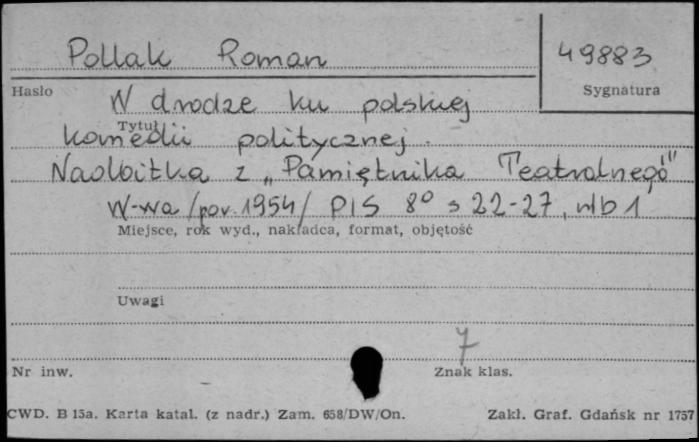 Pollak Roman
49883
Hasło
Sygnatura
W drodze ku polskiej
Tytuł
komedii politycznej.
Nadbitka z „Pamiętnika Teatralnego"
W-wa /pov. 1954/ PIS 8° s 22-27, nlb 1
Miejsce, rok wyd., nakładca, format, objętość
Uwagi
7
Nr inw.
Znak klas.
CWD. B 15a. Karta katal. (z nadr.) Zam. 658/DW/On.
Zakł. Graf. Gdańsk nr 1757